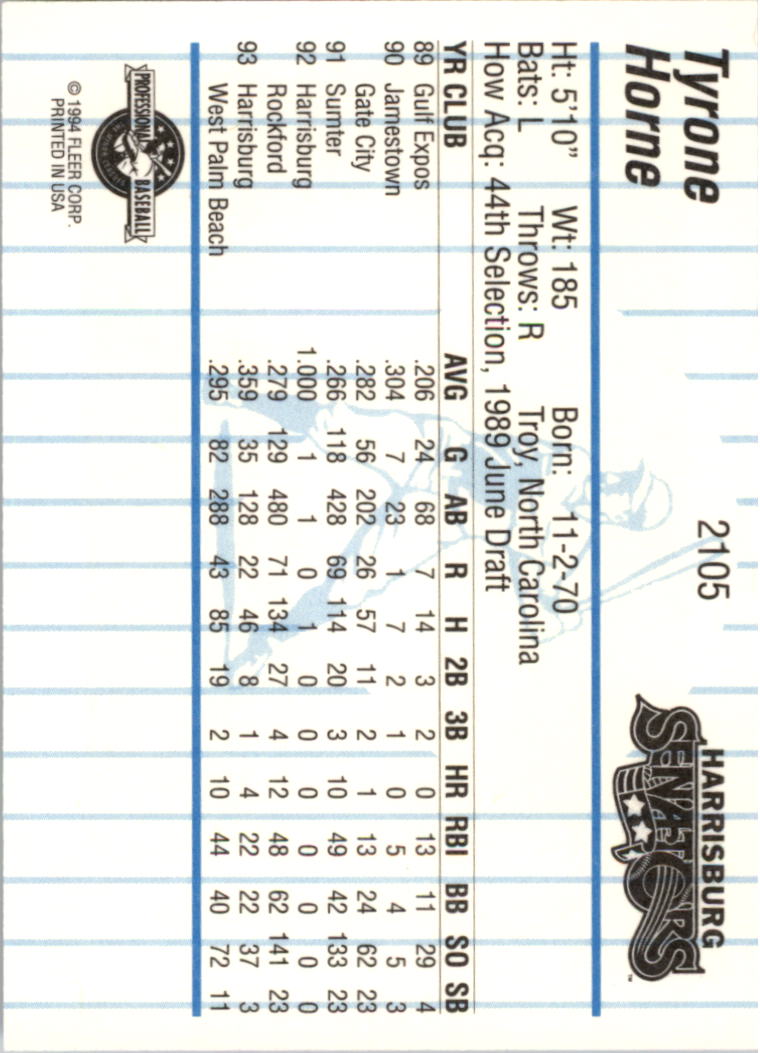 Tyrone
Horne
2105
HARRISBURG
SENATORS
™
Ht: 5'10" Wt: 185 Born: 11-2-70
Bats: L Throws: R Troy, North Carolina
How Acq: 44th Selection, 1989 June Draft
YR CLUB AVG G AB R H 2B 3B HR RBI BB SO SB
89 Gulf Expos .206 24 68 7 14 3 2 0 13 11 29 4
90 Jamestown .304 7 23 1 7 2 1 0 5 4 5 3
Gate City .282 56 202 26 57 11 2 1 13 24 62 23
91 Sumter .266 118 428 69 114 20 3 10 49 42 133 23
92 Harrisburg 1.000 1 1 0 1 0 0 0 0 0 0 0
Rockford .279 129 480 71 134 27 4 12 48 62 141 23
93 Harrisburg .359 35 128 22 46 8 1 4 22 22 37 3
West Palm Beach .295 82 288 43 85 19 2 10 44 40 72 11
PROFESSIONAL BASEBALL
THE MINOR LEAGUES
© 1994 FLEER CORP.
PRINTED IN USA